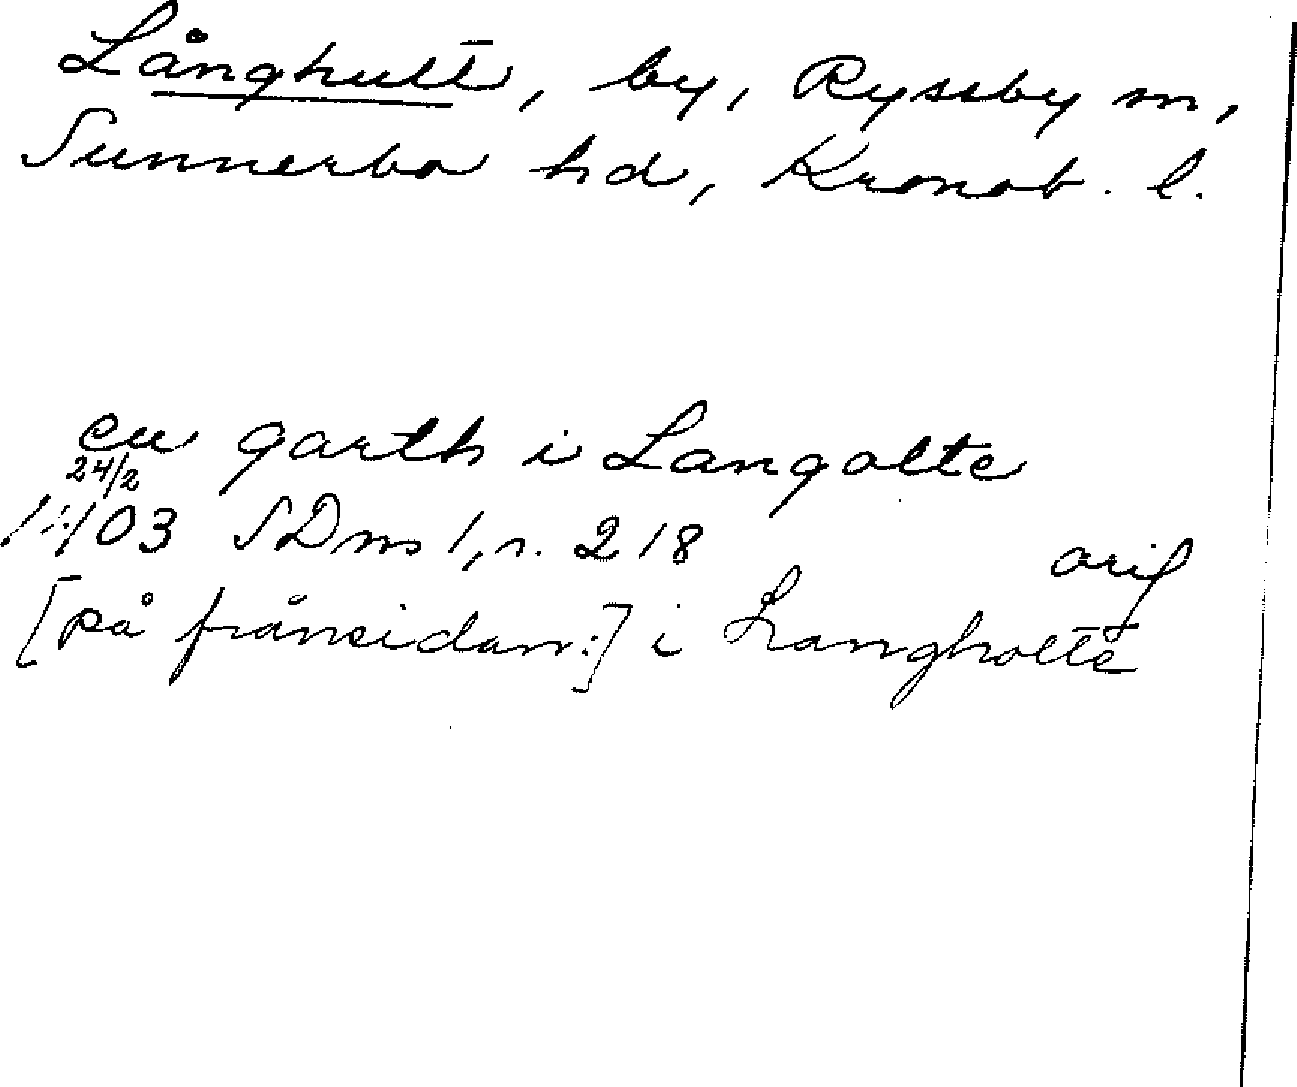 Långhult, by, Ryssby sn,
Sunnerbo hd, Kronob. l.
en garth i Langolte
24/2
1403 SDns 1, s. 218
orig
[på frånsidan:] i Langholte